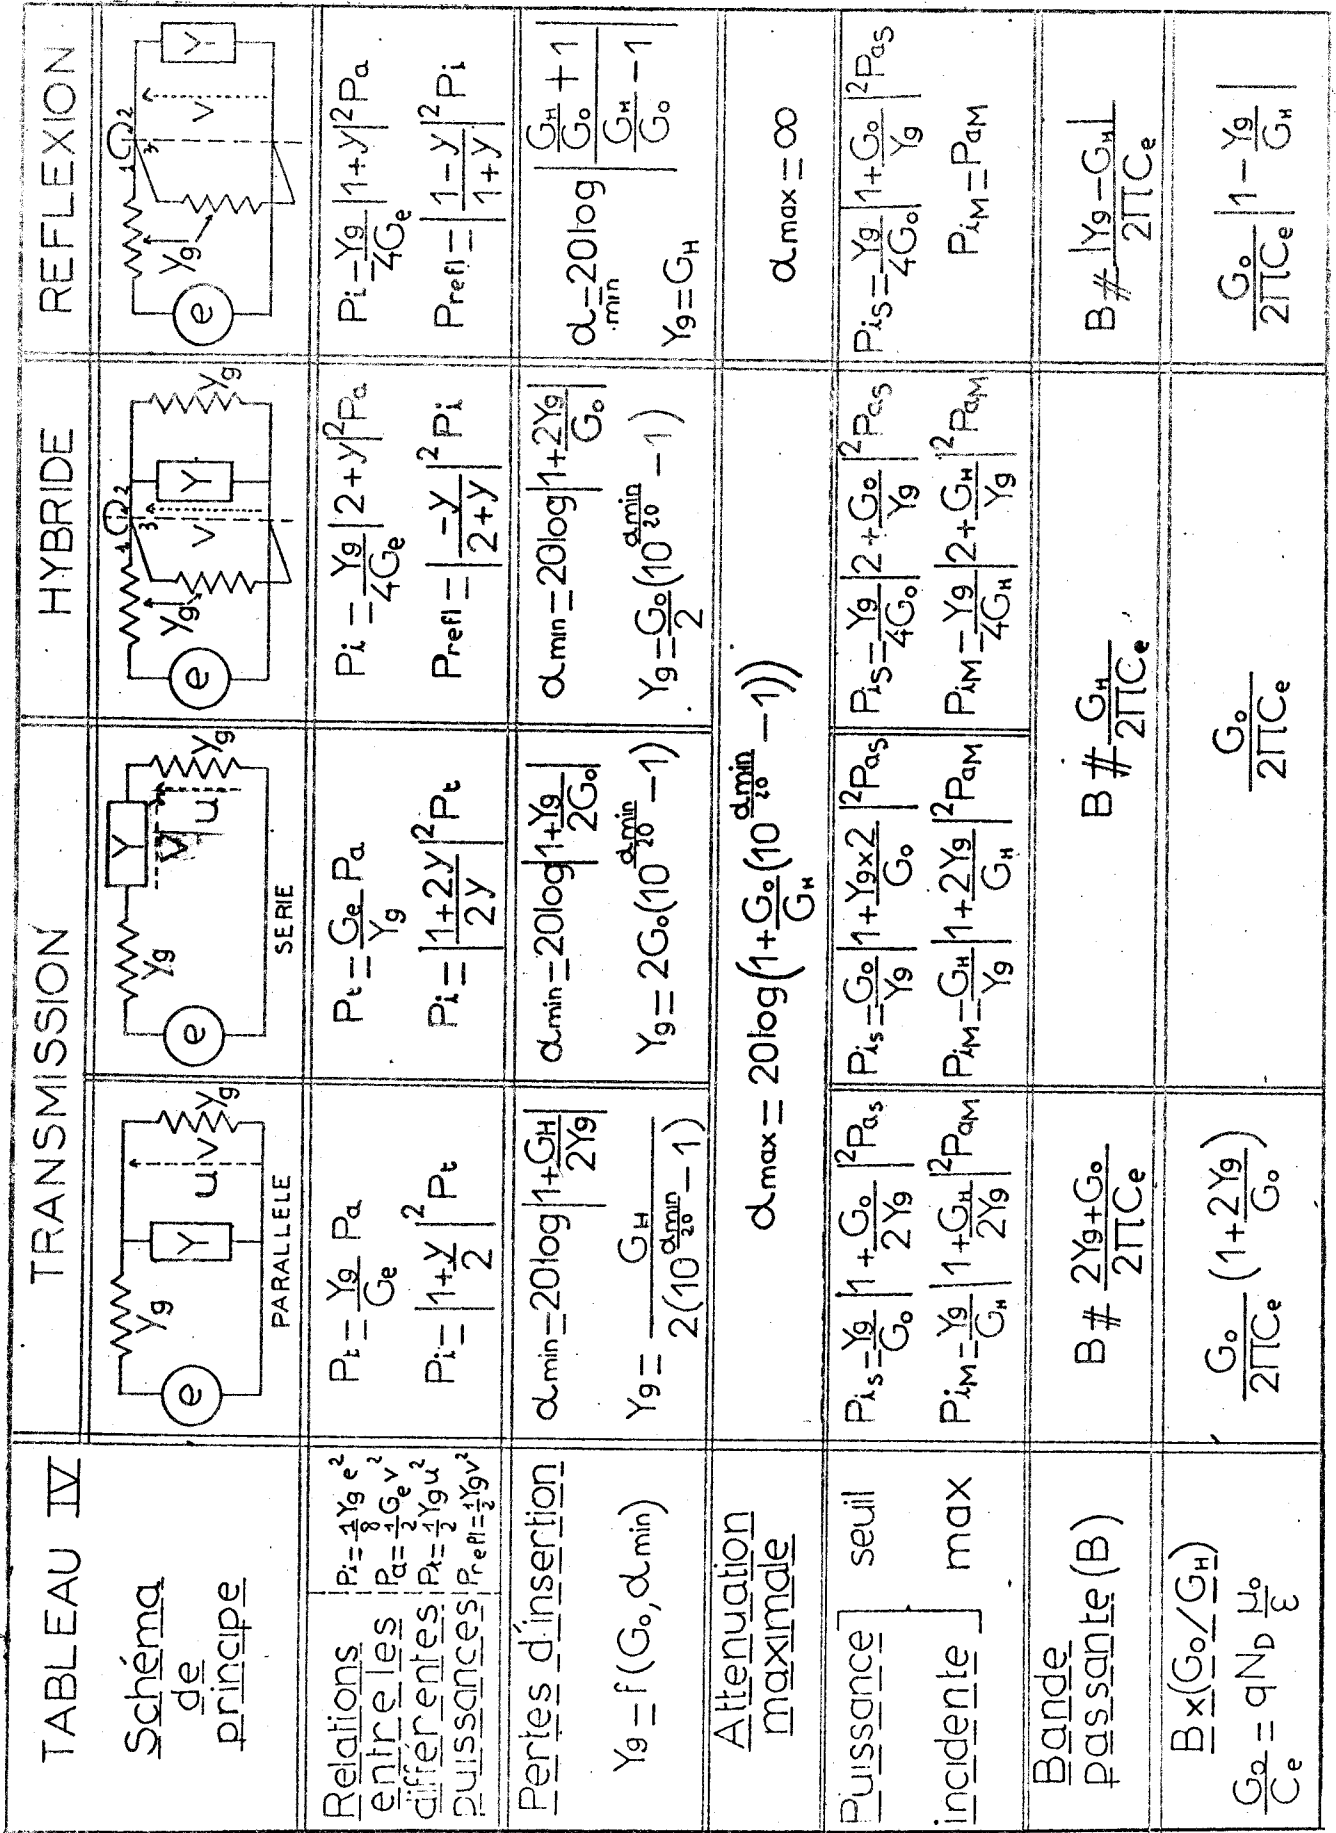 TABLEAU IV
TRANSMISSION
HYBRIDE
REFLEXION
Schéma
de
principe
e
Yg
Y
u
v
Yg
PARALLELE
e
Yg
Y
v
u
Yg
SERIE
e
Yg
1
2
3
v
Y
Yg
e
Yg
1
2
3
v
Y
Relations
entre les
différentes
puissances
Pi = 1/8 Yg e²
Pa = 1/2 Ge v²
Pt = 1/2 Yg u²
Prefl = 1/2 Yg v²
Pt = Yg/Ge Pa
Pi = |1+y/2|² Pt
Pt = Ge/Yg Pa
Pi = |1+2y/2y|² Pt
Pi = Yg/4Ge |2+y|² Pa
Prefl = |-y/2+y|² Pi
Pi = Yg/4Ge |1+y|² Pa
Prefl = |1-y/1+y|² Pi
Pertes d'insertion
Yg = f(Go, αmin)
αmin = 20log|1+GH/2Yg|
Yg = GH/2(10^αmin/20 - 1)
αmin = 20log|1+Yg/2Go|
Yg = 2Go(10^αmin/20 - 1)
αmin = 20log|1+2Yg/Go|
Yg = Go/2(10^αmin/20 - 1)
αmin = 20log|GH/Go + 1/GH/Go - 1|
Yg = GH
Attenuation
maximale
αmax = 20log(1+Go/GH(10^αmin/20 - 1))
αmax = ∞
Puissance
incidente
seuil
max
PiS = Yg/Go |1+Go/2Yg|² PaS
PiM = Yg/GH |1+GH/2Yg|² PaM
PiS = Go/Yg |1+Yg×2/Go|² PaS
PiM = GH/Yg |1+2Yg/GH|² PaM
PiS = Yg/4Go |2+Go/Yg|² PaS
PiM = Yg/4GH |2+GH/Yg|² PaM
PiS = Yg/4Go |1+Go/Yg|² PaS
PiM = PaM
Bande
passante (B)
B # 2Yg+Go/2ΠCe
B # GH/2ΠCe
B # |Yg-GH|/2ΠCe
B×(Go/GH)
Go/Ce = qND μo/ε
Go/2ΠCe (1+2Yg/Go)
Go/2ΠCe
Go/2ΠCe |1-Yg/GH|